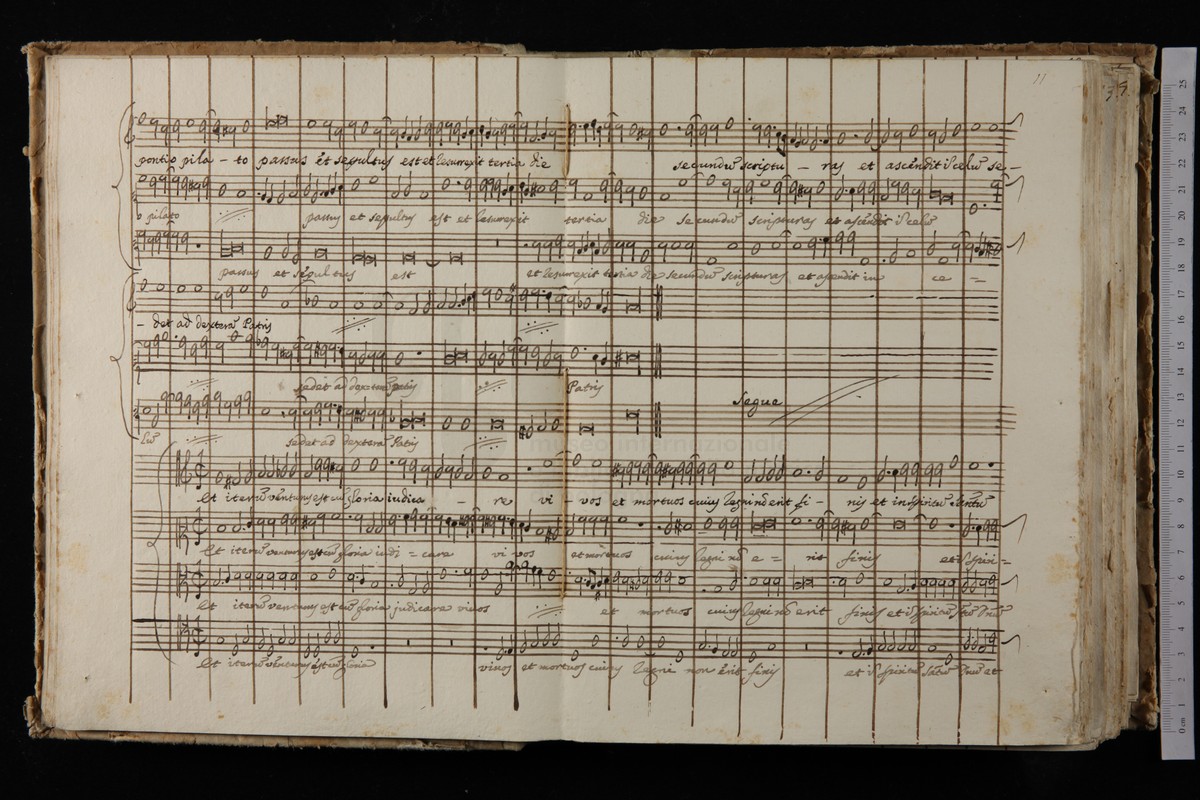 11
35
pontio pila - to passus et sepultus est et Resurexit tertia die secundũ scriptu - ras et ascẽdit ĩ celũ se -
o pilato passus et sepultus est et Resurexit tertia die secundũ scripturas et ascẽdit ĩ celũ
passus et sepultus est et Resurexit tertia die secundũ scripturas et ascendit in ce =
- det ad dexterã Patris
sedet ad dexterã patris Patris
Segue
lũ sedet ad dexterã Patris
museo internazionale
Et iterũ vẽnturus est cũ gloria iudica - re vi - vos et mortuos cuius Regni nõ erit fi - nis et in spiritũ sanctũ
Et iterũ venturus est cũ gloria iudi = care vivos et mortuos cuius Regni nõ e = rit finis et ĩ spiri =
Et iterũ venturus est cũ gloria judicare vivos et mortuos cuius Regni nõ erit finis et ĩ spiritũ sctũ Dnũ
Et iterũ vẽnturus est cũ gloria vivos et mortuos cuius Regni non erit finis et ĩ spiritũ sãtũ Dnũ et
0 cm 1 2 3 4 5 6 7 8 9 10 11 12 13 14 15 16 17 18 19 20 21 22 23 24 25